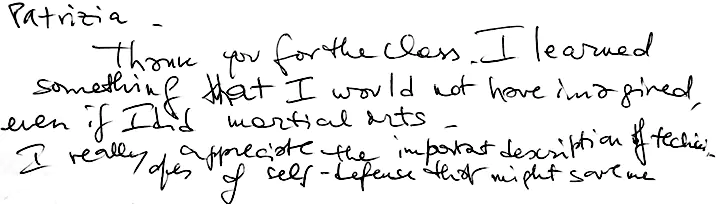 Patrizia -
Thank you for the class. I learned
something that I would not have imagined,
even if I did martial arts -
I really appreciate the important description of techni-
ques of self-defense that might save me